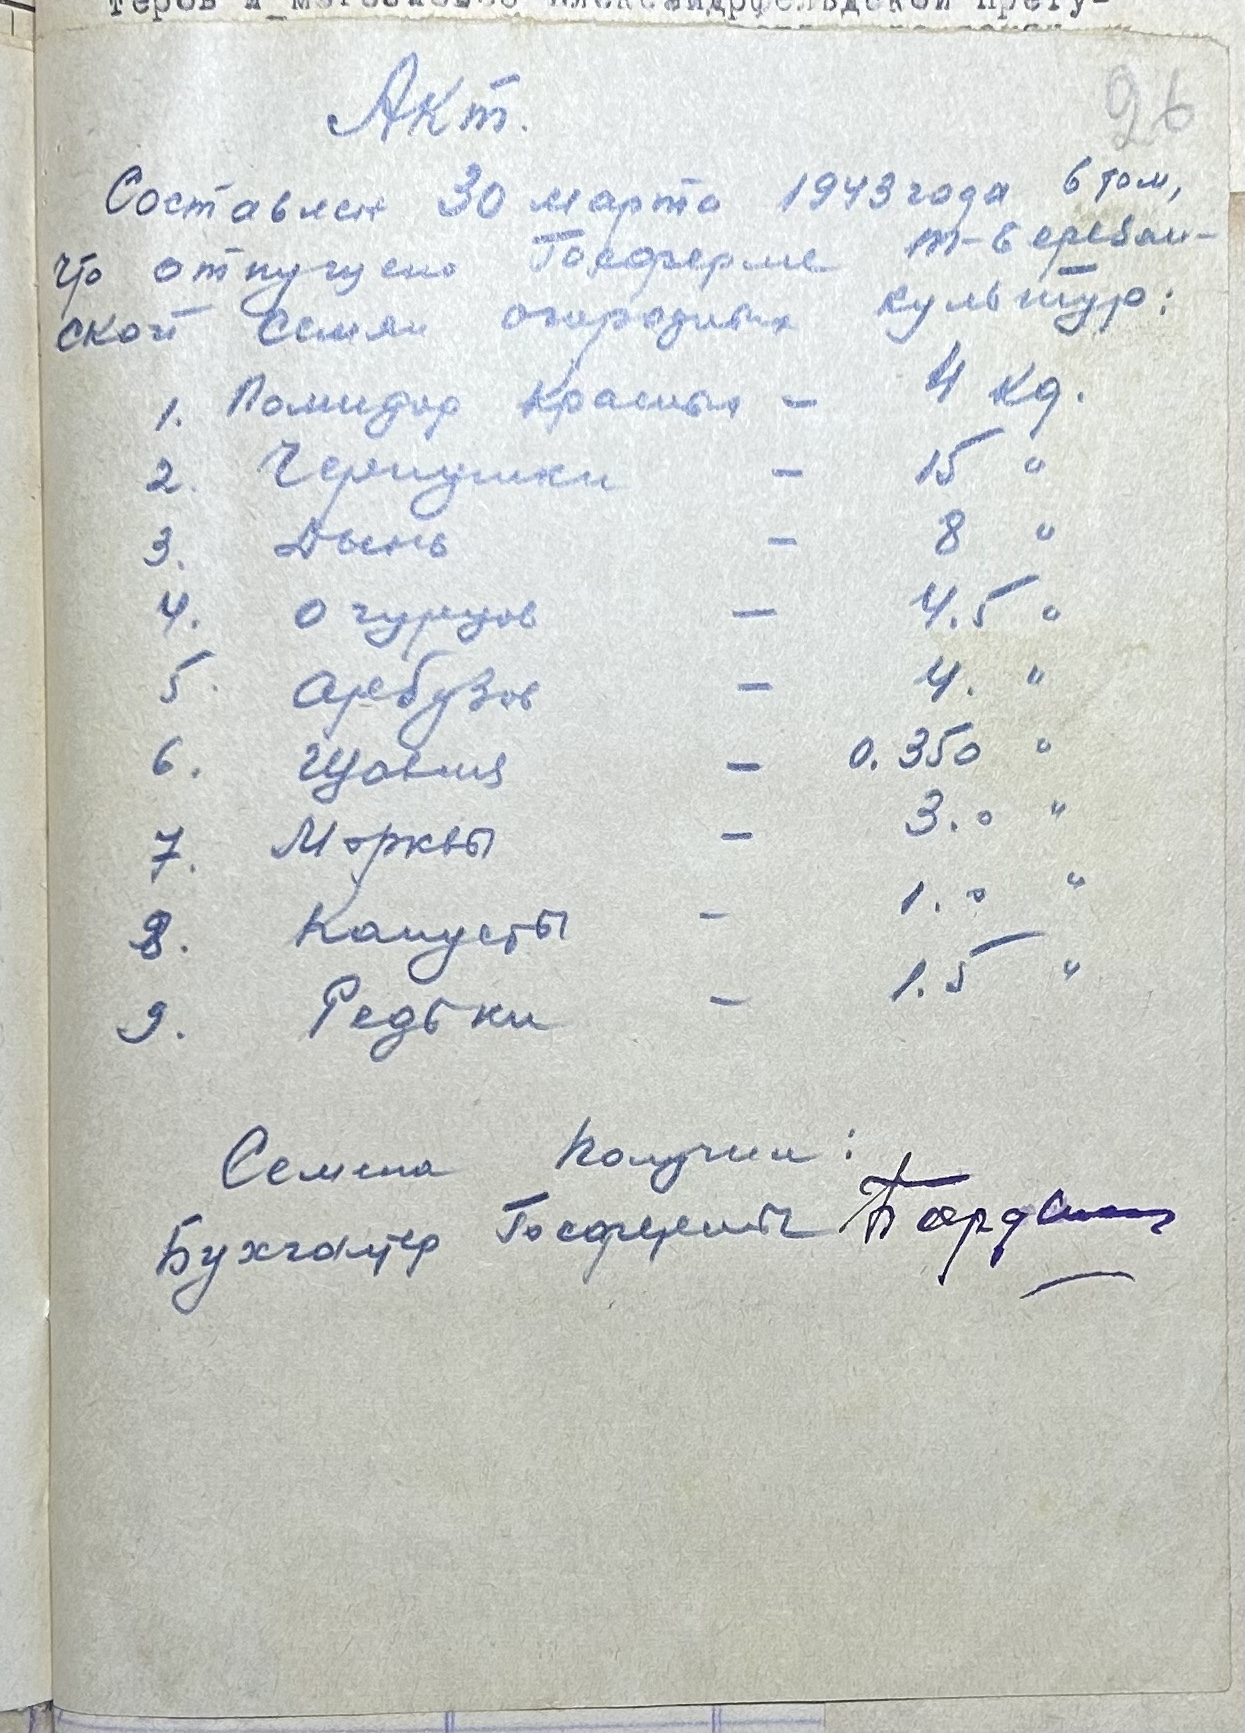 Александрфельдской
26
Акт.
Составлен 30 марта 1943 года в том,
что отпущено Госферме
ской семян огородных культур:
1. Помидор красных - 4 кг.
2. Чернушки - 15 "
3. Дынь - 8 "
4. Огурцов - 4.5 "
5. Арбузов - 4. "
6. Щавлия - 0.350 "
7. Морквы - 3.0 "
8. Капусты - 1.0 "
9. Редьки - 1.5 "
Семена получил:
Бухгалтер Госфермы